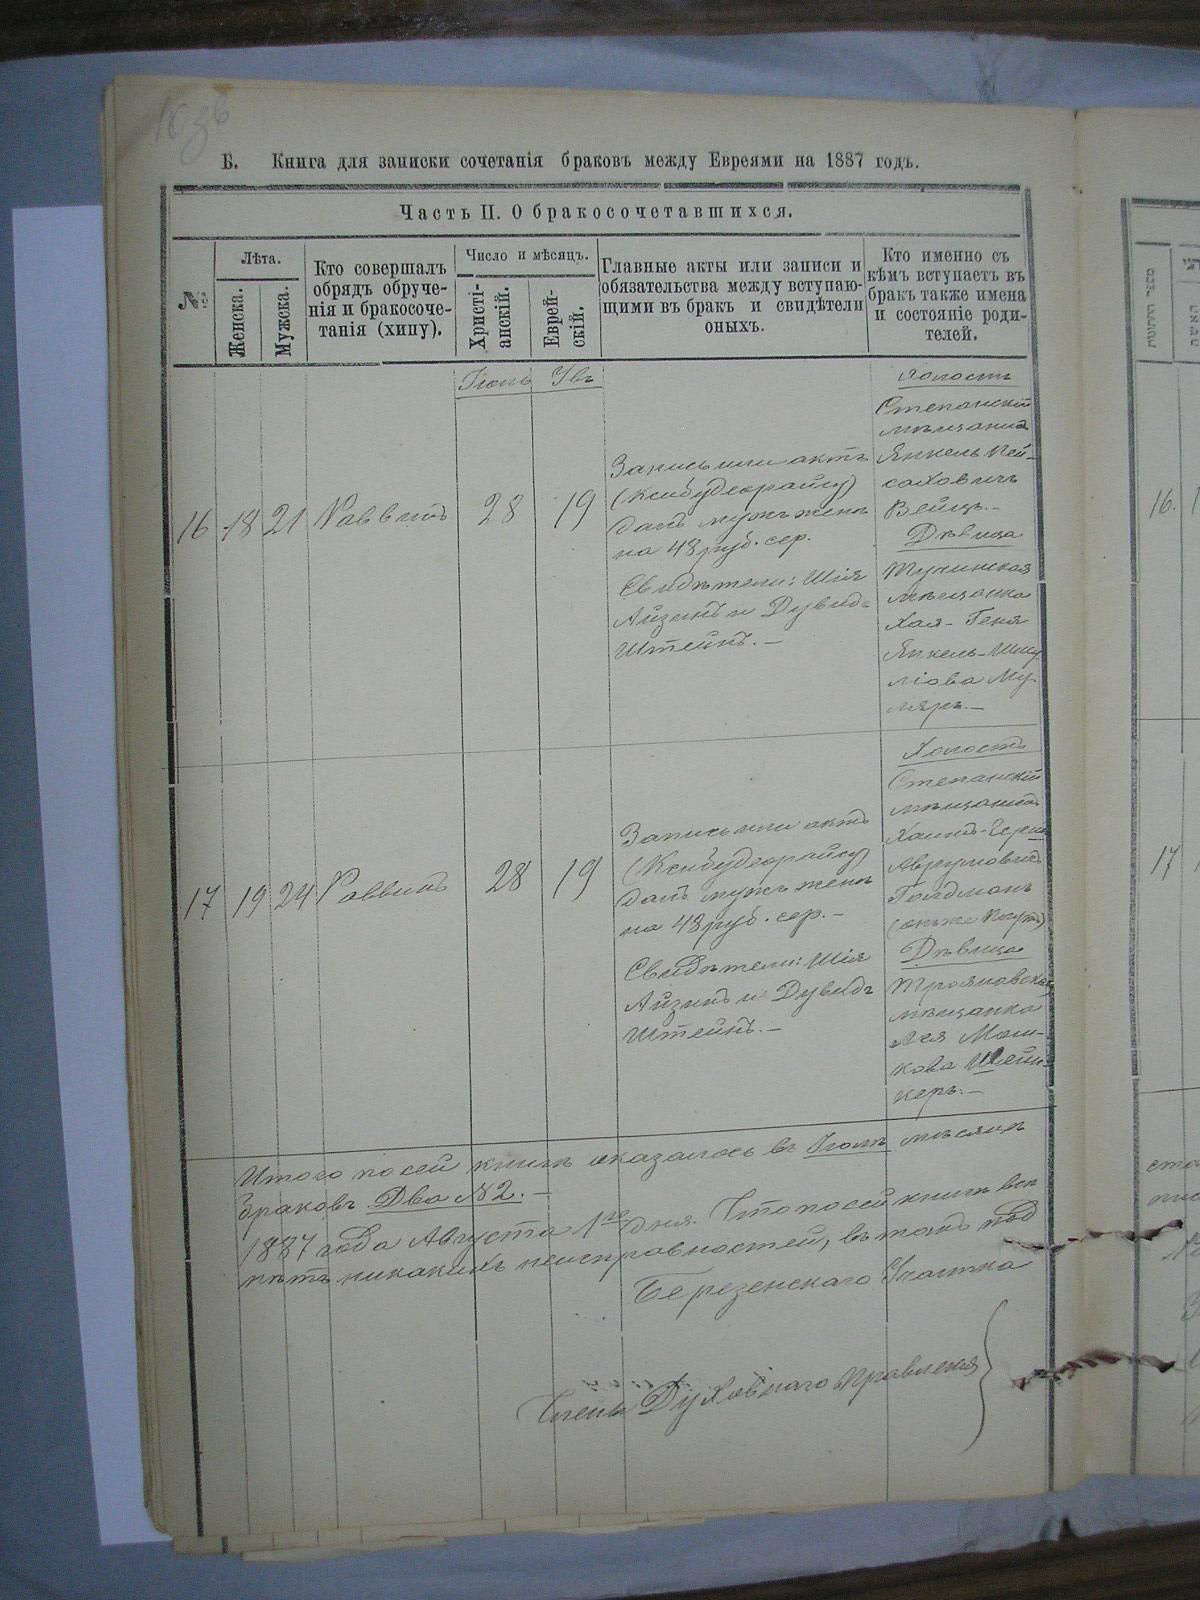 Б. Книга для записки сочетанія браковъ между Евреями на 1887 годъ.
Часть II. О бракосочетавшихся.
№
Лѣта.
Женска.
Мужска.
Кто совершалъ
обрядъ обруче-
нія и бракосоче-
танія (хипу).
Число и мѣсяцъ.
Христі-
анскій.
Еврей-
скій.
Главные акты или записи и
обязательства между вступаю-
щими въ бракъ и свидѣтели
оныхъ.
Кто именно съ
кѣмъ вступаетъ въ
бракъ также имена
и состояніе роди-
телей.
16 18 21 Раввинъ 28 19
Запись или актъ
(Ксибудеорайсу)
далъ мужъ женѣ
на 48 руб. сер.
Свидѣтели: Шія
Айзенъ и Дувидъ
Штейнъ.—
Холостъ
Степанскій
мѣщанинъ
Янкель Пей-
саховичъ
Вейцъ.—
Дѣвица
Тучинская
мѣщанка
Хая-Геня
Янкель-Шму
ліова Му-
ляръ.—
17 19 24 Раввинъ 28 19
Запись или актъ
(Ксибудеорайсу)
далъ мужъ женѣ
на 48 руб. сер.—
Свидѣтели: Шія
Айзенъ и Дувидъ
Штейнъ.—
Холостъ
Степанскій
мѣщанинъ
Авrумовичъ
Гольдманъ
Дѣвица
Трояновская
мѣщанка
Лея Мош-
кова Шлейн-
керъ.—
Итого по сей книгѣ оказалось въ Іюнѣ мѣсяцѣ
браковъ Два №2.—
1887 года Августа 1го дня. Что по сей книгѣ
нѣтъ никакихъ неисправностей, въ томъ под
Березенскаго Участка
Члены Духовнаго Правленія
16.
17